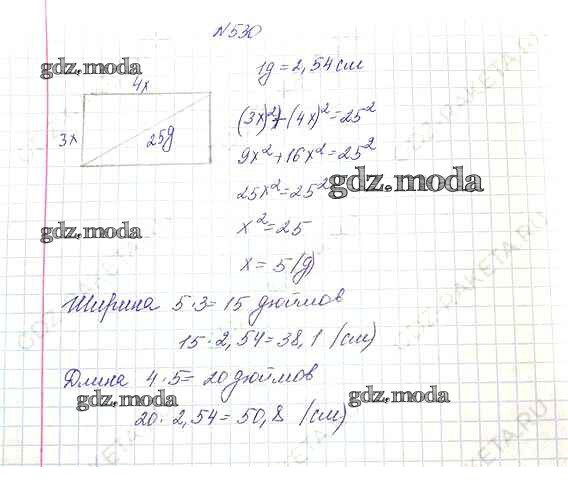 N530
1g = 2,54 см
gdz.moda
4x
3x
25g
(3x)² + (4x)² = 25²
9x² + 16x² = 25²
25x² = 25²
gdz.moda
gdz.moda
x² = 25
x = 5 (g)
Ширина 5·3 = 15 дюймов
15·2,54 = 38,1 (см)
Длина 4·5 = 20 дюймов
gdz.moda
gdz.moda
20·2,54 = 50,8 (см)